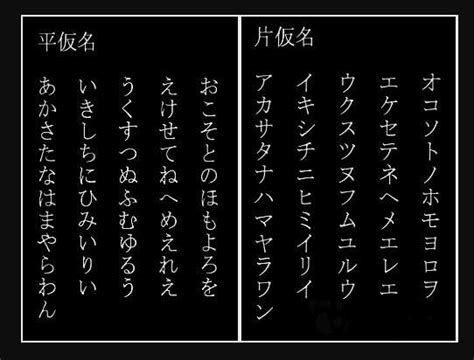 平仮名
あかさたなはまやらわん
いきしちにひみいりい
うくすつぬふむゆるう
えけせてねへめえれえ
おこそとのほもよろを
片仮名
アカサタナハマヤラワン
イキシチニヒミイリイ
ウクスツヌフムユルウ
エケセテネヘメエレエ
オコソトノホモヨロヲ